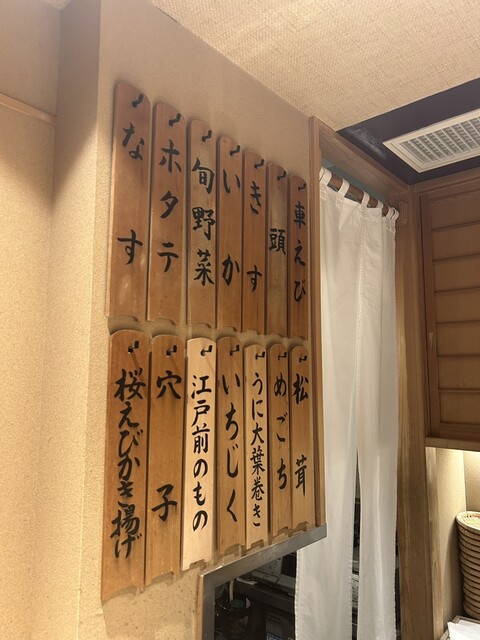 車えび
頭
きす
いか
旬野菜
ホタテ
なす
松茸
めごち
うに大葉巻き
いちじく
江戸前のもの
穴子
桜えびかき揚げ